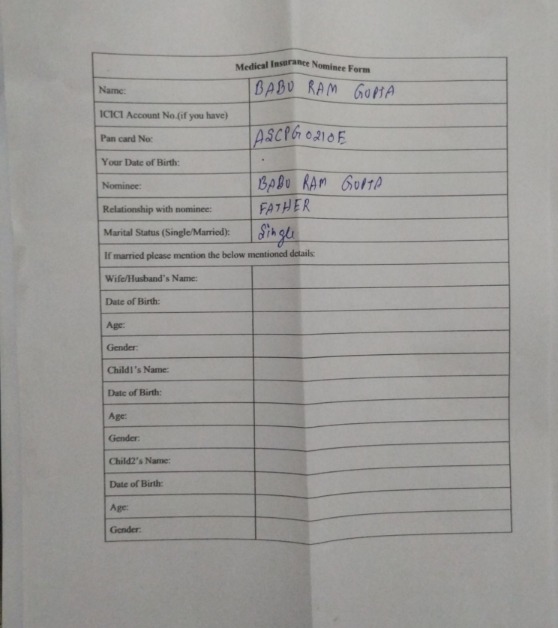 Medical Insurance Nominee Form
Name: BABU RAM GUPTA
ICICI Account No.(if you have)
Pan card No: ASCPG0210E
Your Date of Birth:
Nominee: BABU RAM GUPTA
Relationship with nominee: FATHER
Marital Status (Single/Married): Single
If married please mention the below mentioned details:
Wife/Husband's Name:
Date of Birth:
Age:
Gender:
Child1's Name:
Date of Birth:
Age:
Gender:
Child2's Name:
Date of Birth:
Age:
Gender: